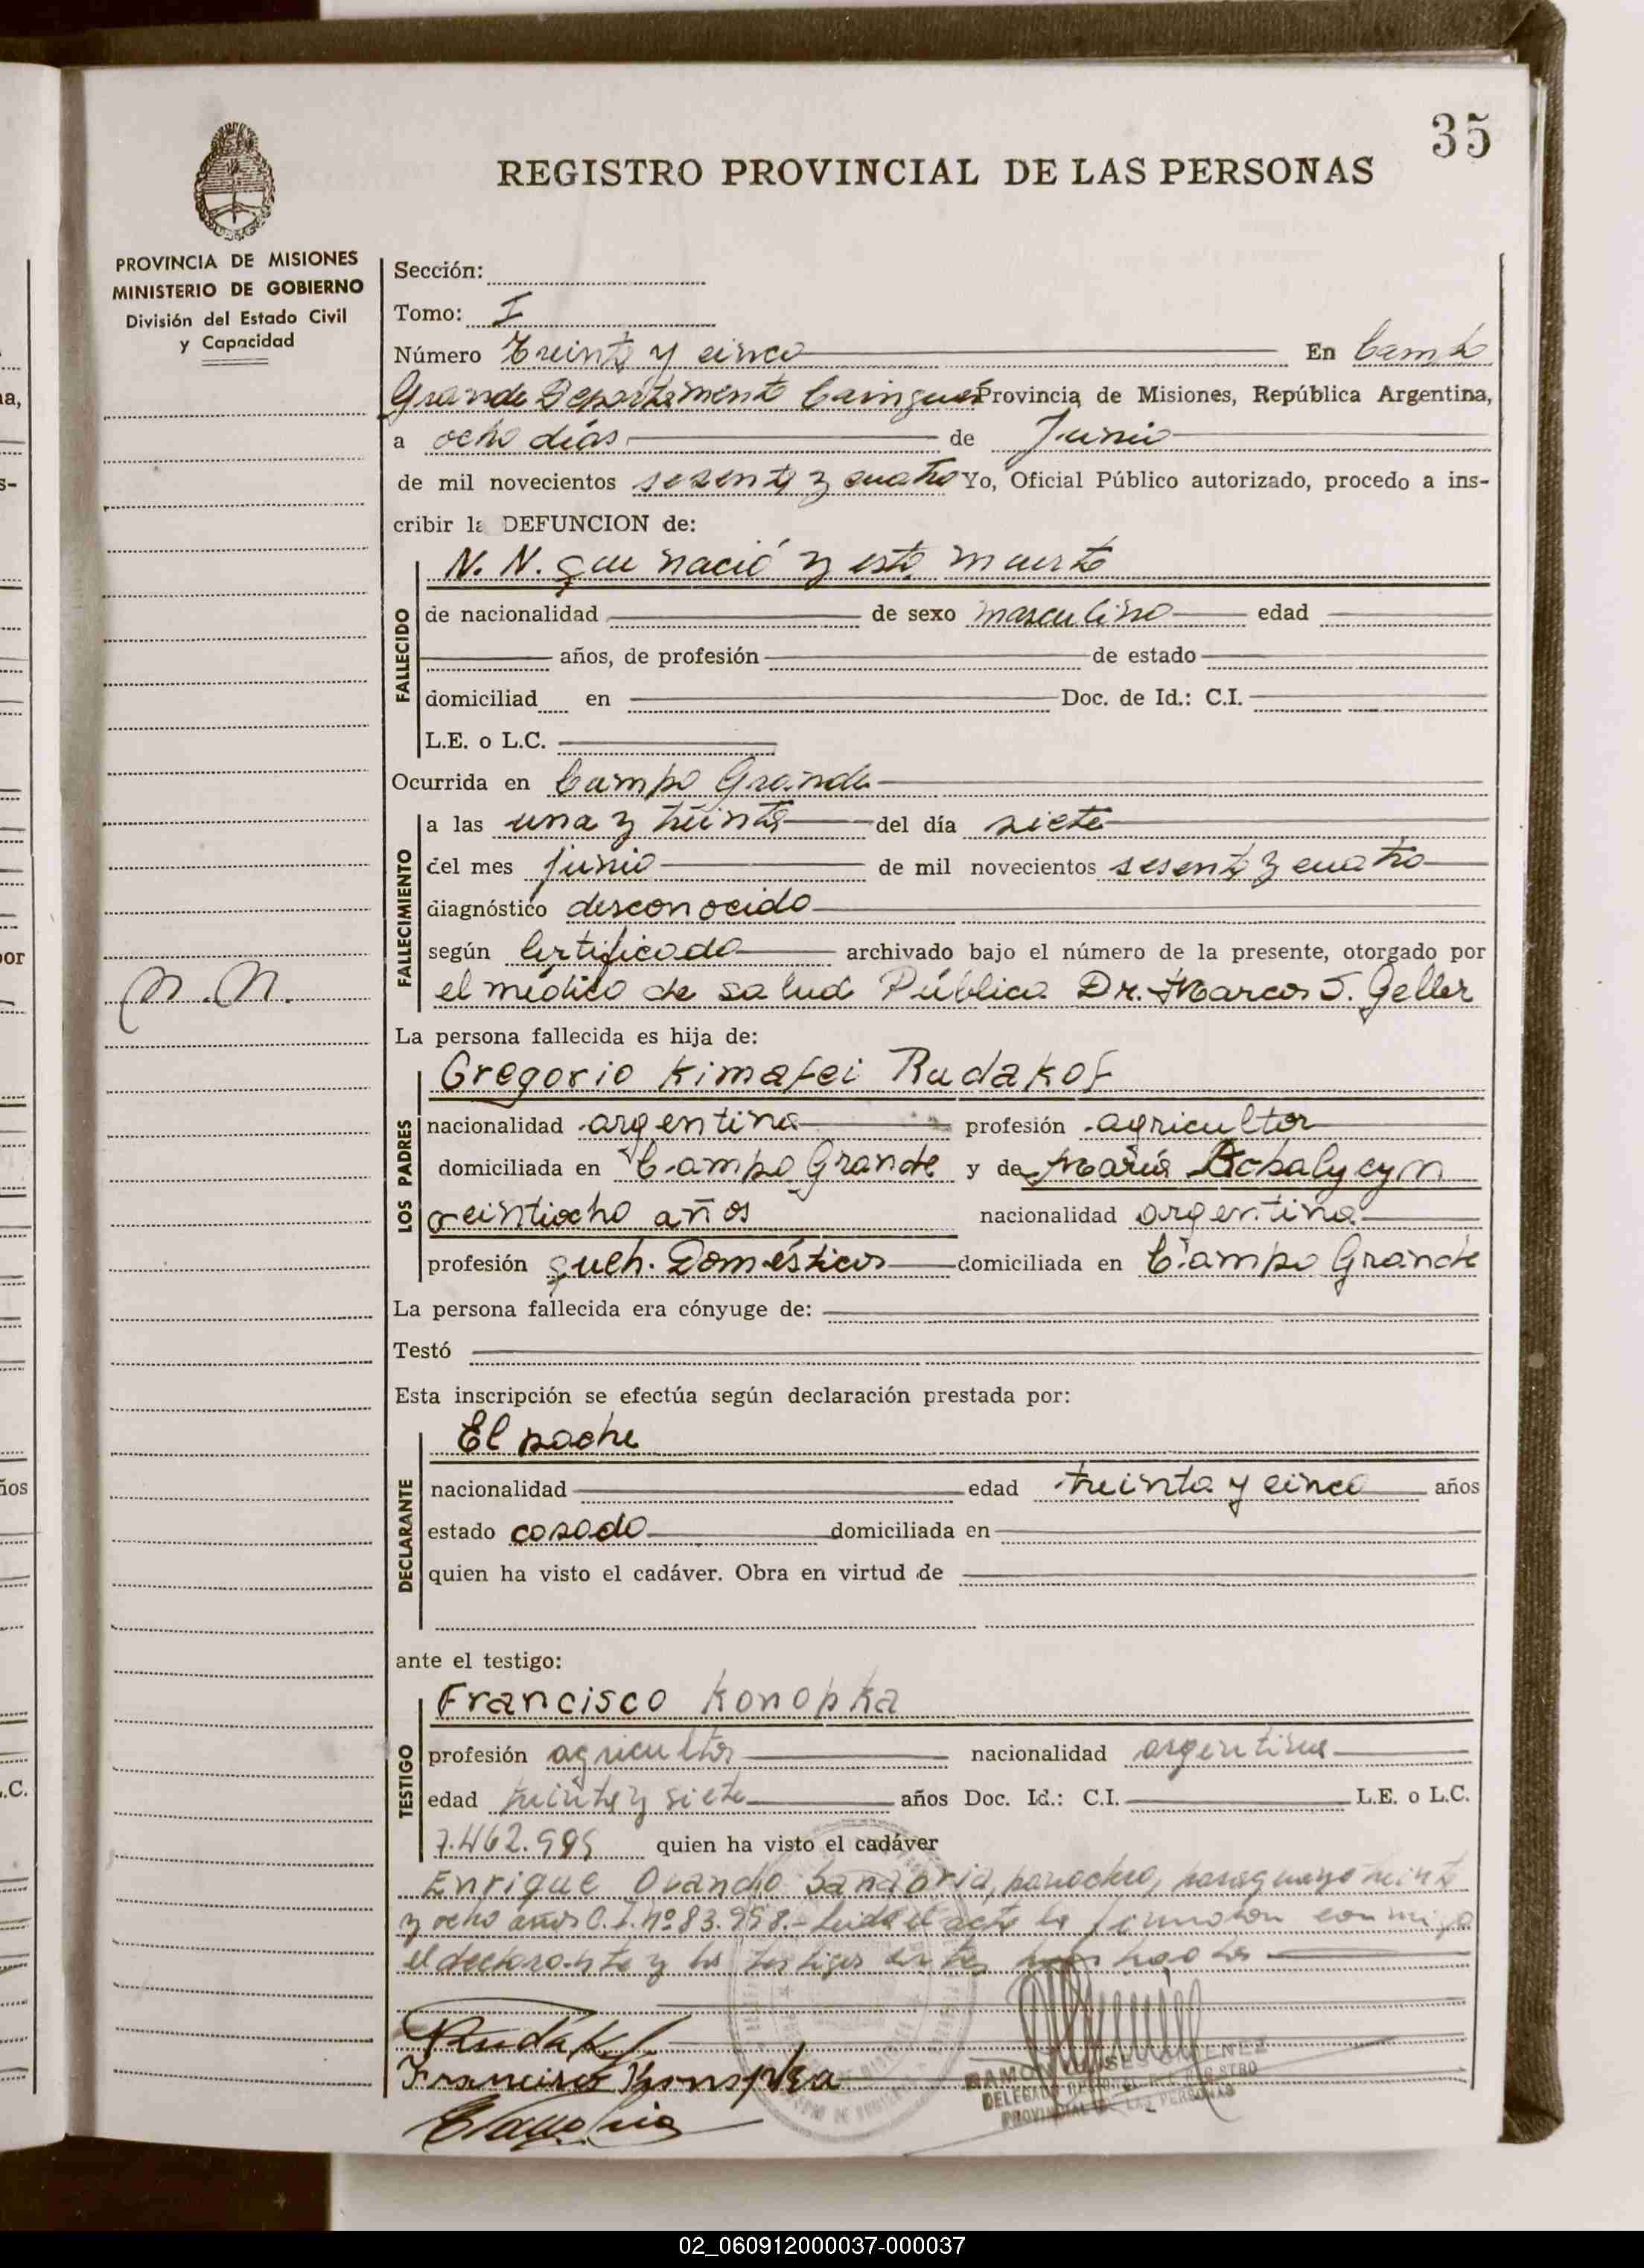 35
REGISTRO PROVINCIAL DE LAS PERSONAS
PROVINCIA DE MISIONES
MINISTERIO DE GOBIERNO
División del Estado Civil
y Capacidad
Sección:
Tomo: I
Número Treinta y cinco En Campo
Grande Departamento Cainguas Provincia de Misiones, República Argentina,
a ocho días de Junio
de mil novecientos sesenta y cuatro Yo, Oficial Público autorizado, procedo a ins-
cribir la DEFUNCION de:
N. N. que nació y esta muerto
FALLECIDO
de nacionalidad de sexo masculino edad
años, de profesión de estado
domiciliad en Doc. de Id.: C.I.
L.E. o L.C.
Ocurrida en Campo Grande
FALLECIMIENTO
a las una y treinta del día siete
del mes junio de mil novecientos sesenta y cuatro
diagnóstico desconocido
según Certificado archivado bajo el número de la presente, otorgado por
el médico de salud Pública Dr. Marcos J. Geller
N.N.
La persona fallecida es hija de:
Gregorio Kimafei Rudakof
LOS PADRES
nacionalidad argentina profesión agricultor
domiciliada en Campo Grande y de María
veintiocho años nacionalidad argentina
profesión queh. Domésticos domiciliada en Campo Grande
La persona fallecida era cónyuge de:
Testó
Esta inscripción se efectúa según declaración prestada por:
El padre
DECLARANTE
nacionalidad edad treinta y cinco años
estado casado domiciliada en
quien ha visto el cadáver. Obra en virtud de
ante el testigo:
Francisco Konopka
TESTIGO
profesión agricultor nacionalidad argentina
edad treinta y siete años Doc. Id.: C.I. L.E. o L.C.
7.462.995 quien ha visto el cadáver
Enrique Ovando Sanabria, paraguayo treinta
y ocho años C.I. nº 83.958.- Leida el acta la firmaron conmigo
el declarante y los testigos
Rudakof
Francisco Konopka
RAMON
DELEGADO REGISTRO
PROVINCIAL DE LAS PERSONAS
02_060912000037-000037